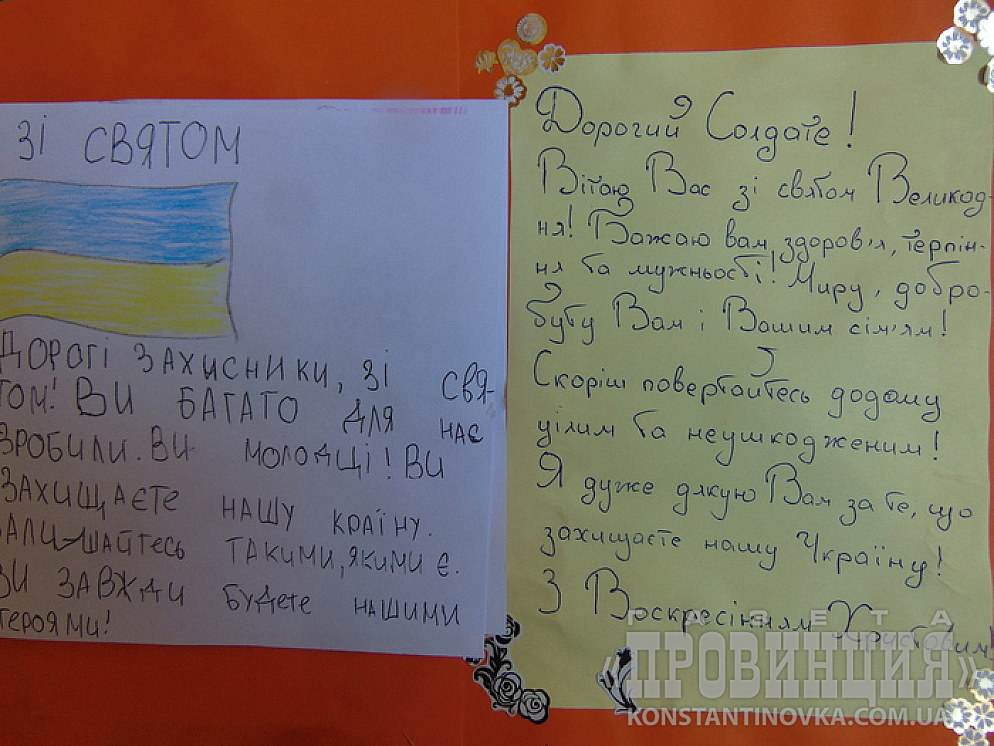 ЗІ СВЯТОМ
ДОРОГІ ЗАХИСНИКИ, ЗІ СВЯ-
ТОМ! ВИ БАГАТО ДЛЯ НАС
ЗРОБИЛИ. ВИ МОЛОДЦІ! ВИ
ЗАХИЩАЄТЕ НАШУ КРАЇНУ.
ЗАЛИШАЙТЕСЬ ТАКИМИ, ЯКИМИ Є.
ВИ ЗАВЖДИ БУДЕТЕ НАШИМИ
ГЕРОЯМИ!
Дорогий Солдате!
Вітаю Вас зі святом Великод-
ня! Бажаю вам здоров'я, терпін-
ня та мужньості! Миру, добро-
буту Вам і Вашим сім'ям!
Скоріш повертайтесь додому
цілим та неушкодженим!
Я дуже дякую Вам за те, що
захищаєте нашу Україну!
З Воскресінням Христовим!
ГАЗЕТА
«ПРОВИНЦИЯ»
KONSTANTINOVKA.COM.UA